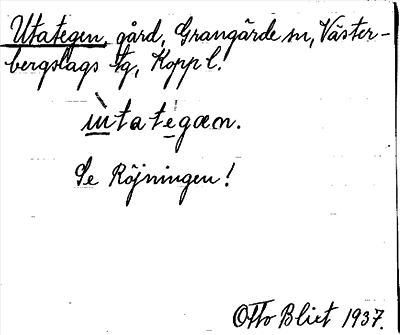 Utategen, gård, Grangärde sn, Väster-
bergslags tg, Kopp l.
ùtatégæn.
Se Röjningen!
Otto Blixt 1937.